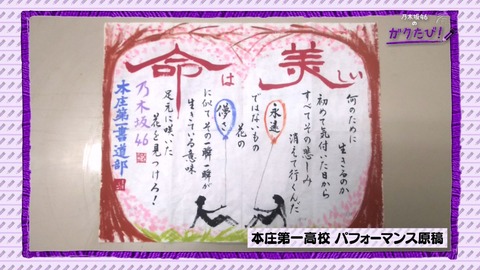 乃木坂46の
ガクたび!
命は美しい
何のために
生きるのか
初めて気付いた日から
すべてその悲しみ
消えて行くんだ
永遠
ではないもの
花の
儚さ
に似てその一瞬一瞬が
生きている意味
足元に咲いた
花を見つけろ!
乃木坂46
本庄第一書道部
本庄第一高校 パフォーマンス原稿